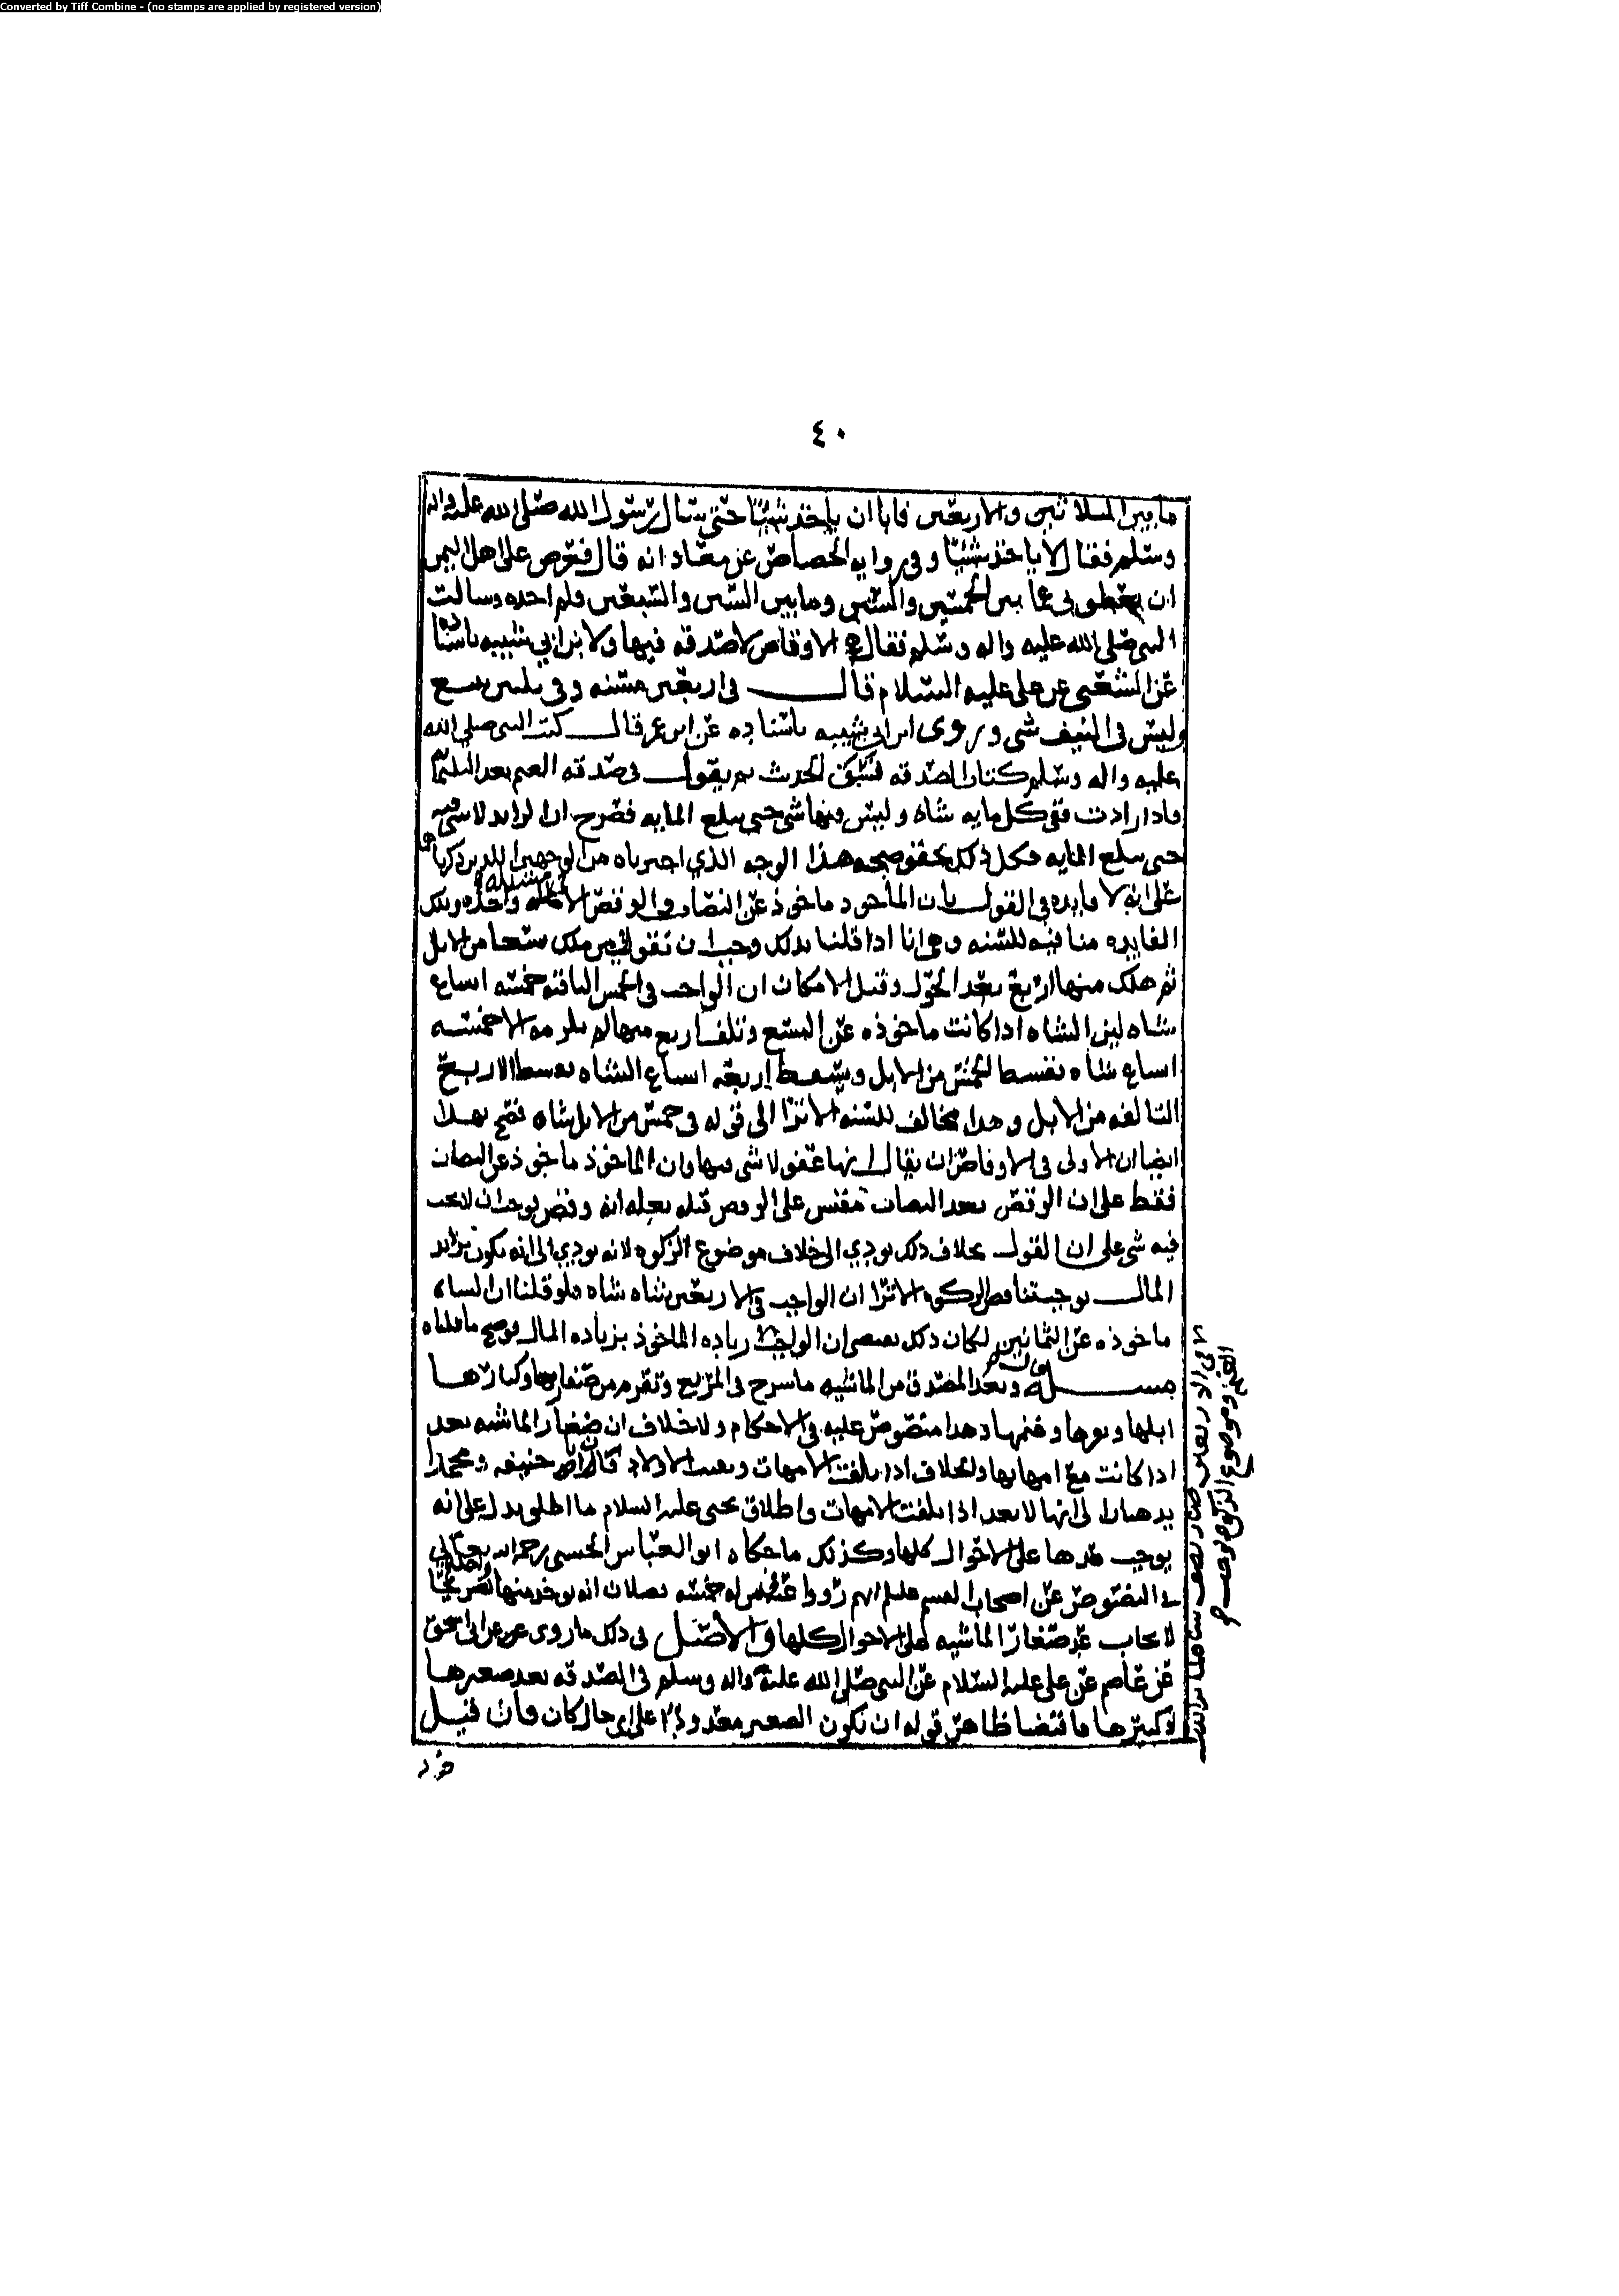 Converted by Tiff Combine - (no stamps are applied by registered version)
٤٠
ما بين الثلاثين والاربعين فابا ان ياخذ شيئا حتى يسال رسول الله صلى الله عليه واله
وسلم فقال لا ياخذ شيئا وفي روايه الخصاص عن معاذ انه قال فعرض على اهل اليمن
ان يعطوني ما بين الخمسين والستين وما بين الستين والسبعين فلم اخذه وسالت
النبي صلى الله عليه واله وسلم فقال هي الاوقاص لا صدقه فيها ولابن ابي شيبه باسناده
عن الشعبي عن علي عليه السلام قال في اربعين مسنه وفي ثلثين تبيع
وليس في النيف شي وروى ابن ابي شيبه باسناده عن ابن عمر قال كتب النبي صلى الله
عليه واله وسلم كتاب الصدقه الحديث ثم يقول في صدقه الغنم بعد الثلثما
فاذا زادت ففي كل مايه شاه وليس فيها شي حتى يبلغ المايه فصرح ان الزايد لا شي فيه
حتى يبلغ المايه فكل ذلك يحقق صحه هذا الوجه الذي اخترناه من الوجهين اللذين ذكرناهما
على انه لا فايده في القول بان الماخوذ ماخوذ عن النصاب والوقص الا مسئله واحده وتلك
الفايده منافيه للسنه وهي انا اذا قلنا بذلك وجب ان نقول فيمن ملك تسعا من الابل
ثم هلك منها اربع بعد الحول وقبل الامكان ان الواجب في الخمس الباقيه خمسه اتساع
شاه لان الشاه اذا كانت ماخوذه عن التسع وتلف اربع منها لم يلزمه الا خمسه
اتساع شاه بقسط الخمس من الابل ويسقط اربعه اتساع الشاه بقسط الاربع
التالفه من الابل وهذا مخالف للسنه الا ترا الى قوله في خمس من الابل شاه فصح بهذا
ايضا ان الاولى في الاوقاص ان يقال انها عفو لا شي فيها وان الماخوذ ماخوذ عن النصاب
فقط على ان الوقص بعد النصاب مقيس على الوقص قبله بعله انه وقص فوجب ان لا يجب
فيه شي على ان القول بخلاف ذلك يودي الى خلاف موضوع الزكوه لانه يودي الى انه يكون تزايد
المال يوجب تناقص الزكوه الا ترا ان الواجب في الاربعين شاه شاه فلو قلنا ان الشاه
ماخوذه عن الثمانين لكان ذلك ان الواجب زياده الماخوذ بزياده المال فوضح ما قلناه
مسئله ويعد المصدق من الماشيه ما سرح في المرتع وتقرم من صغارها وكبارها
ابلها وبقرها وغنمها وهذا منصوص عليه في الاحكام ولا خلاف ان صغار الماشيه تعد
اذا كانت مع امهاتها والخلاف اذا تلفت الامهات وبقيت الاولاد فان ابا حنيفه ومحمدا
يذهبان الى انها لا تعد اذا تلفت الامهات واطلاق يحيى عليه السلام ما اطلق يدل على انه
يوجب عدها على الاحوال كلها وكذلك ما حكاه ابو العباس الحسني رحمه الله تعالى
في النصوص عن اصحاب القسم عليه السلم انهم رووا عنه فيمن له خمسه فصلان انه يوخذ منها
لايجاب عد صغار الماشيه على الاحوال كلها والاصل في ذلك ما روى عن ابي اسحق
عن عاصم عن علي عليه السلام عن النبي صلى الله عليه واله وسلم في الصدقه يعد صغيرها
وكبيرها فاقتضا ظاهر قوله ان يكون الصغير معدودا على اي حال كان فان قيل
الغنم وموضوع الزكوه يوجب